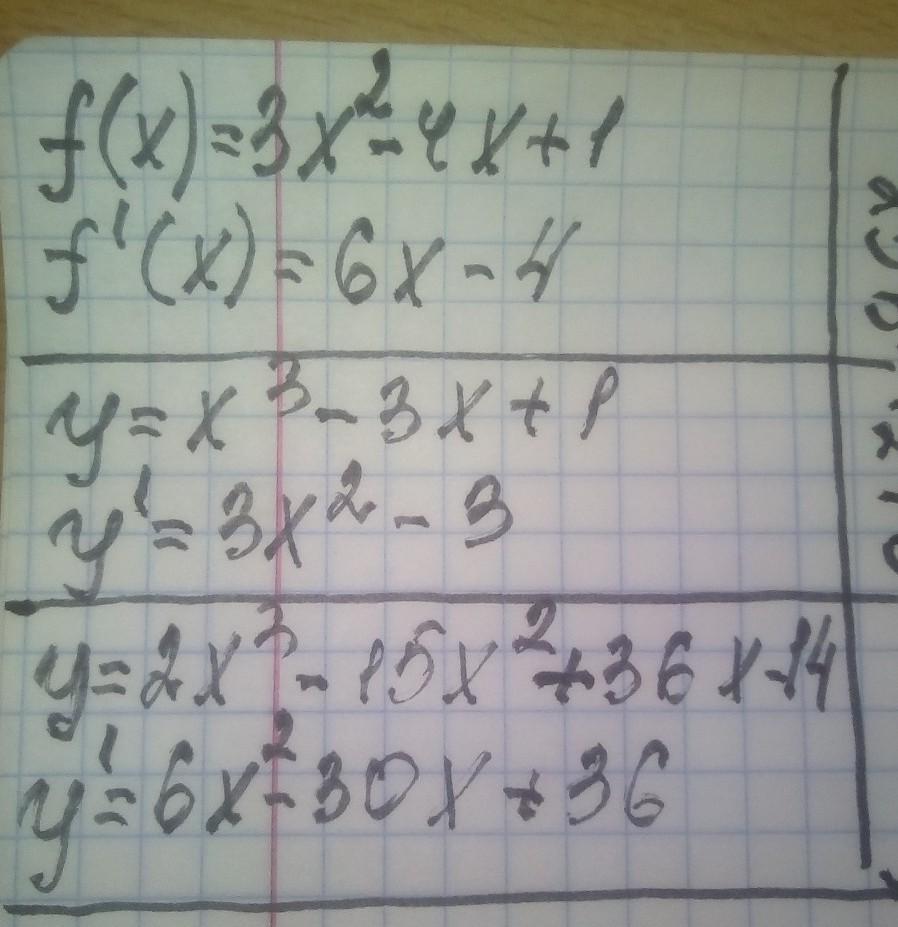 f(x)=3x²-4x+1
f'(x)=6x-4
y=x³-3x+1
y'=3x²-3
y=2x³-15x²+36x-14
y'=6x²-30x+36